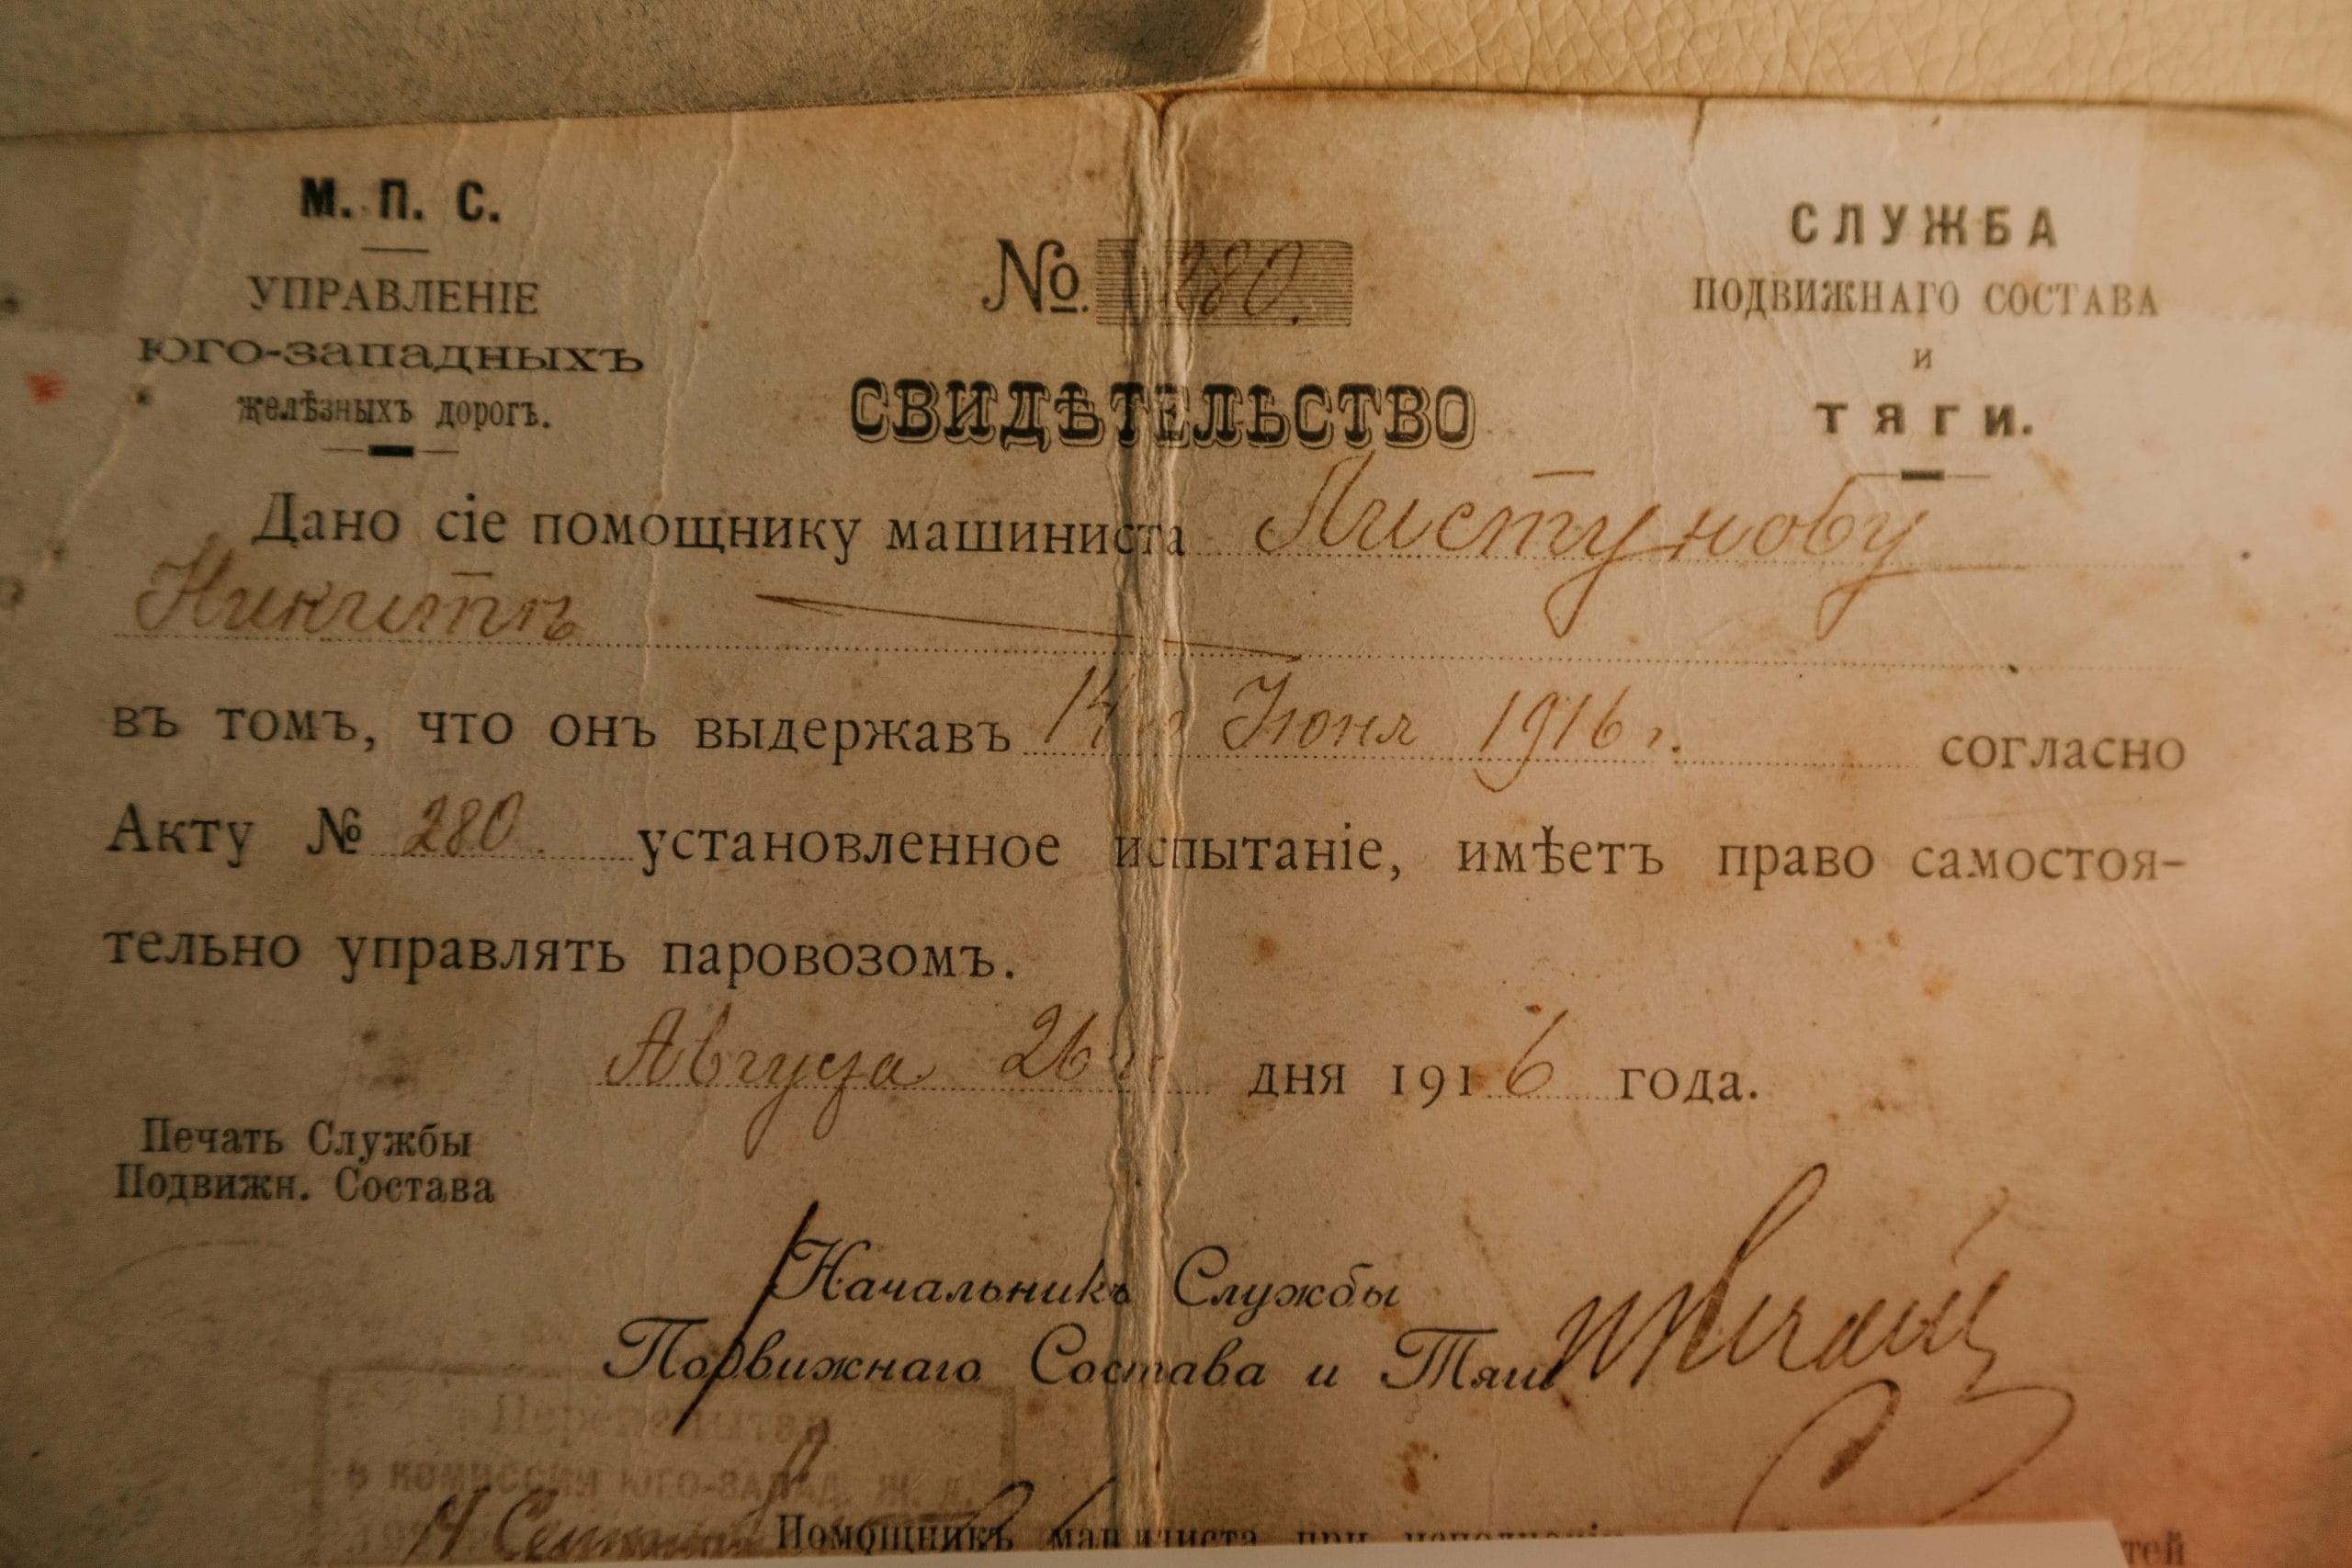 М. П. С.
УПРАВЛЕНІЕ
ЮГО-ЗАПАДНЫХЪ
желѣзныхъ дорогъ.
№. 280.
СВИДѢТЕЛЬСТВО
СЛУЖБА
ПОДВИЖНАГО СОСТАВА
И
ТЯГИ.
Дано сіе помощнику машиниста Листунову
Никитѣ
въ томъ, что онъ выдержавъ 14 Іюня 1916 г. согласно
Акту № 280. установленное испытаніе, имѣетъ право самостоя-
тельно управлять паровозомъ.
Августа 26 дня 1916 года.
Печать Службы
Подвижн. Состава
Начальникъ Службы
Подвижнаго Состава и Тяги
в комиссии Юго-Запад. ж. д.
Помощникъ машиниста при